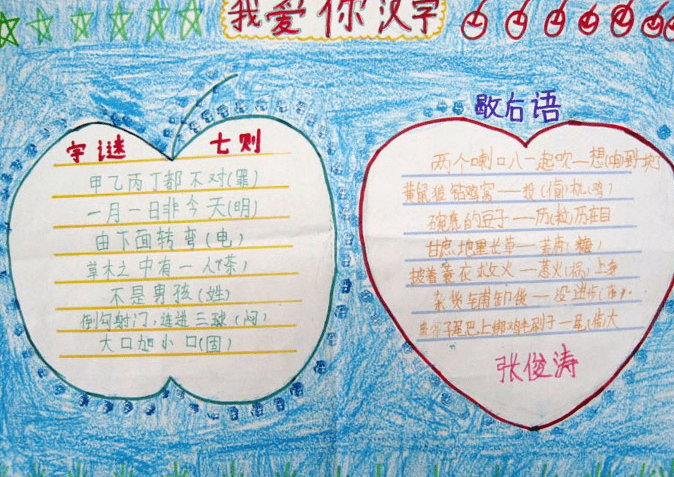 我爱你汉字
字谜 七则
甲乙丙丁都不对(罪)
一月一日非今天(明)
由下面转弯(电)
草木之中有一人(茶)
不是男孩(姓)
倒勾射门,连进三球(闷)
大口加小口(回)
歇后语
两个喇叭一起吹—想(响到一块
黄鼠狼钻鸡窝——投(偷)机(鸡)
碗底的豆子——历(粒)历在目
甘蔗地里长草——荒唐(糖)
披着蓑衣救火——惹火(祸)上身
杂货铺卸货——没进步(布
尾巴上绑鸡毛
张俊涛